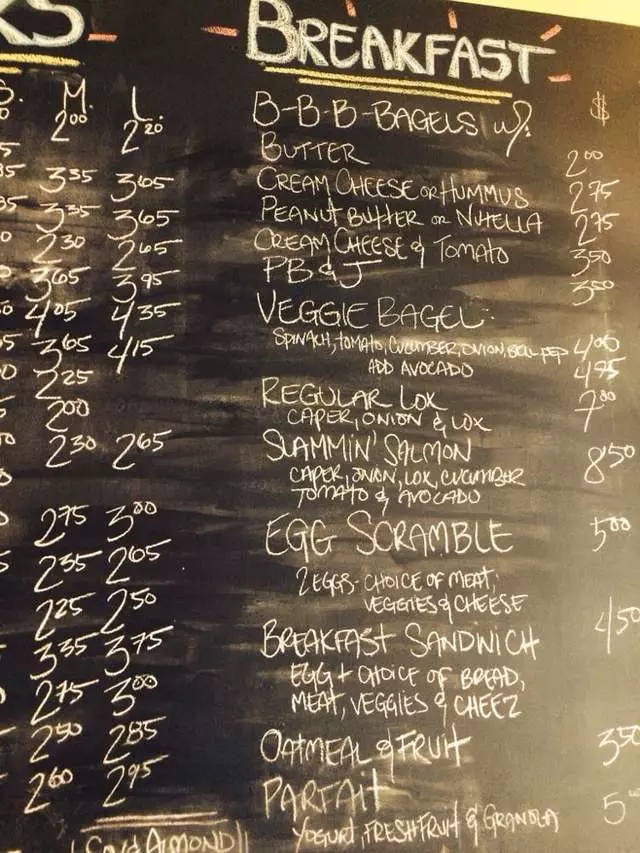 KS
S. M. L.
2.00 2.20
3.35 3.65
3.35 3.65
2.30 2.65
3.65 3.95
4.05 4.35
3.65 4.15
2.25
2.00
2.30 2.65
2.75 3.00
2.35 2.65
2.25 2.50
3.35 3.75
2.75 3.00
2.50 2.85
2.60 2.95
ALMOND
BREAKFAST
B-B-B-BAGELS w/: $
BUTTER 2.00
CREAM CHEESE OR HUMMUS 2.75
PEANUT BUTTER OR NUTELLA 2.75
CREAM CHEESE & TOMATO 3.50
PB & J 3.50
VEGGIE BAGEL:
SPINACH, TOMATO, CUCUMBER, ONION, BELL PEP 4.00
ADD AVOCADO 4.95
REGULAR LOX 7.00
CAPER, ONION & LOX
SLAMMIN' SALMON 8.50
CAPER, ONION, LOX, CUCUMBER
TOMATO & AVOCADO
EGG SCRAMBLE 5.00
2 EGGS - CHOICE OF MEAT,
VEGGIES & CHEESE
BREAKFAST SANDWICH 4.50
EGG + CHOICE OF BREAD,
MEAT, VEGGIES & CHEEZ
OATMEAL & FRUIT 3.50
PARFAIT 5.
YOGURT, FRESH FRUIT & GRANOLA